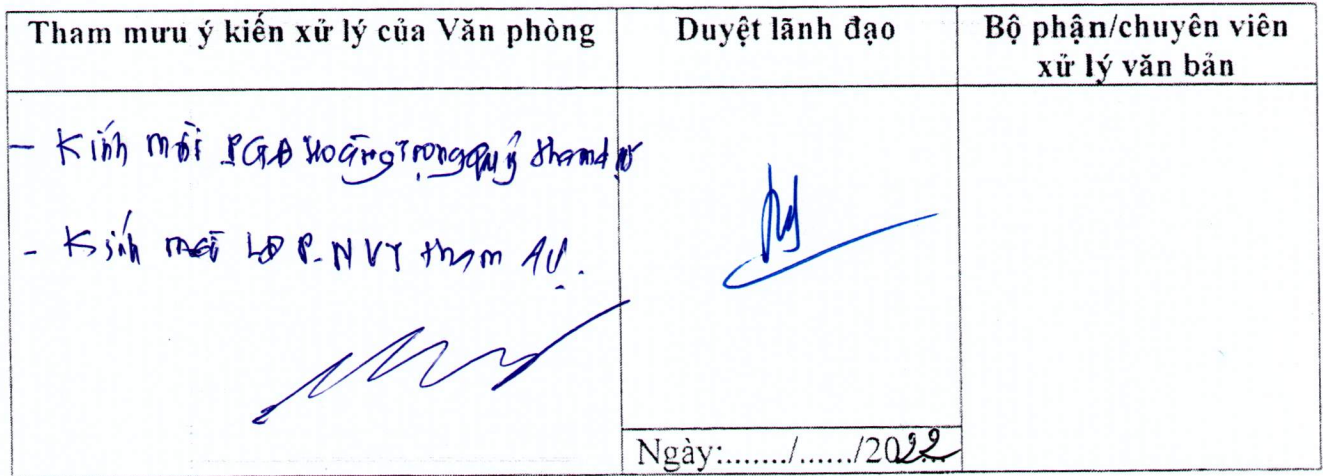 Tham mưu ý kiến xử lý của Văn phòng
Duyệt lãnh đạo
Bộ phận/chuyên viên
xử lý văn bản
- Kính mời PGĐ Hoàng Trọng Quý tham dự
- Kính mời LĐ P.NVY tham dự.
Ngày:......./....../2022